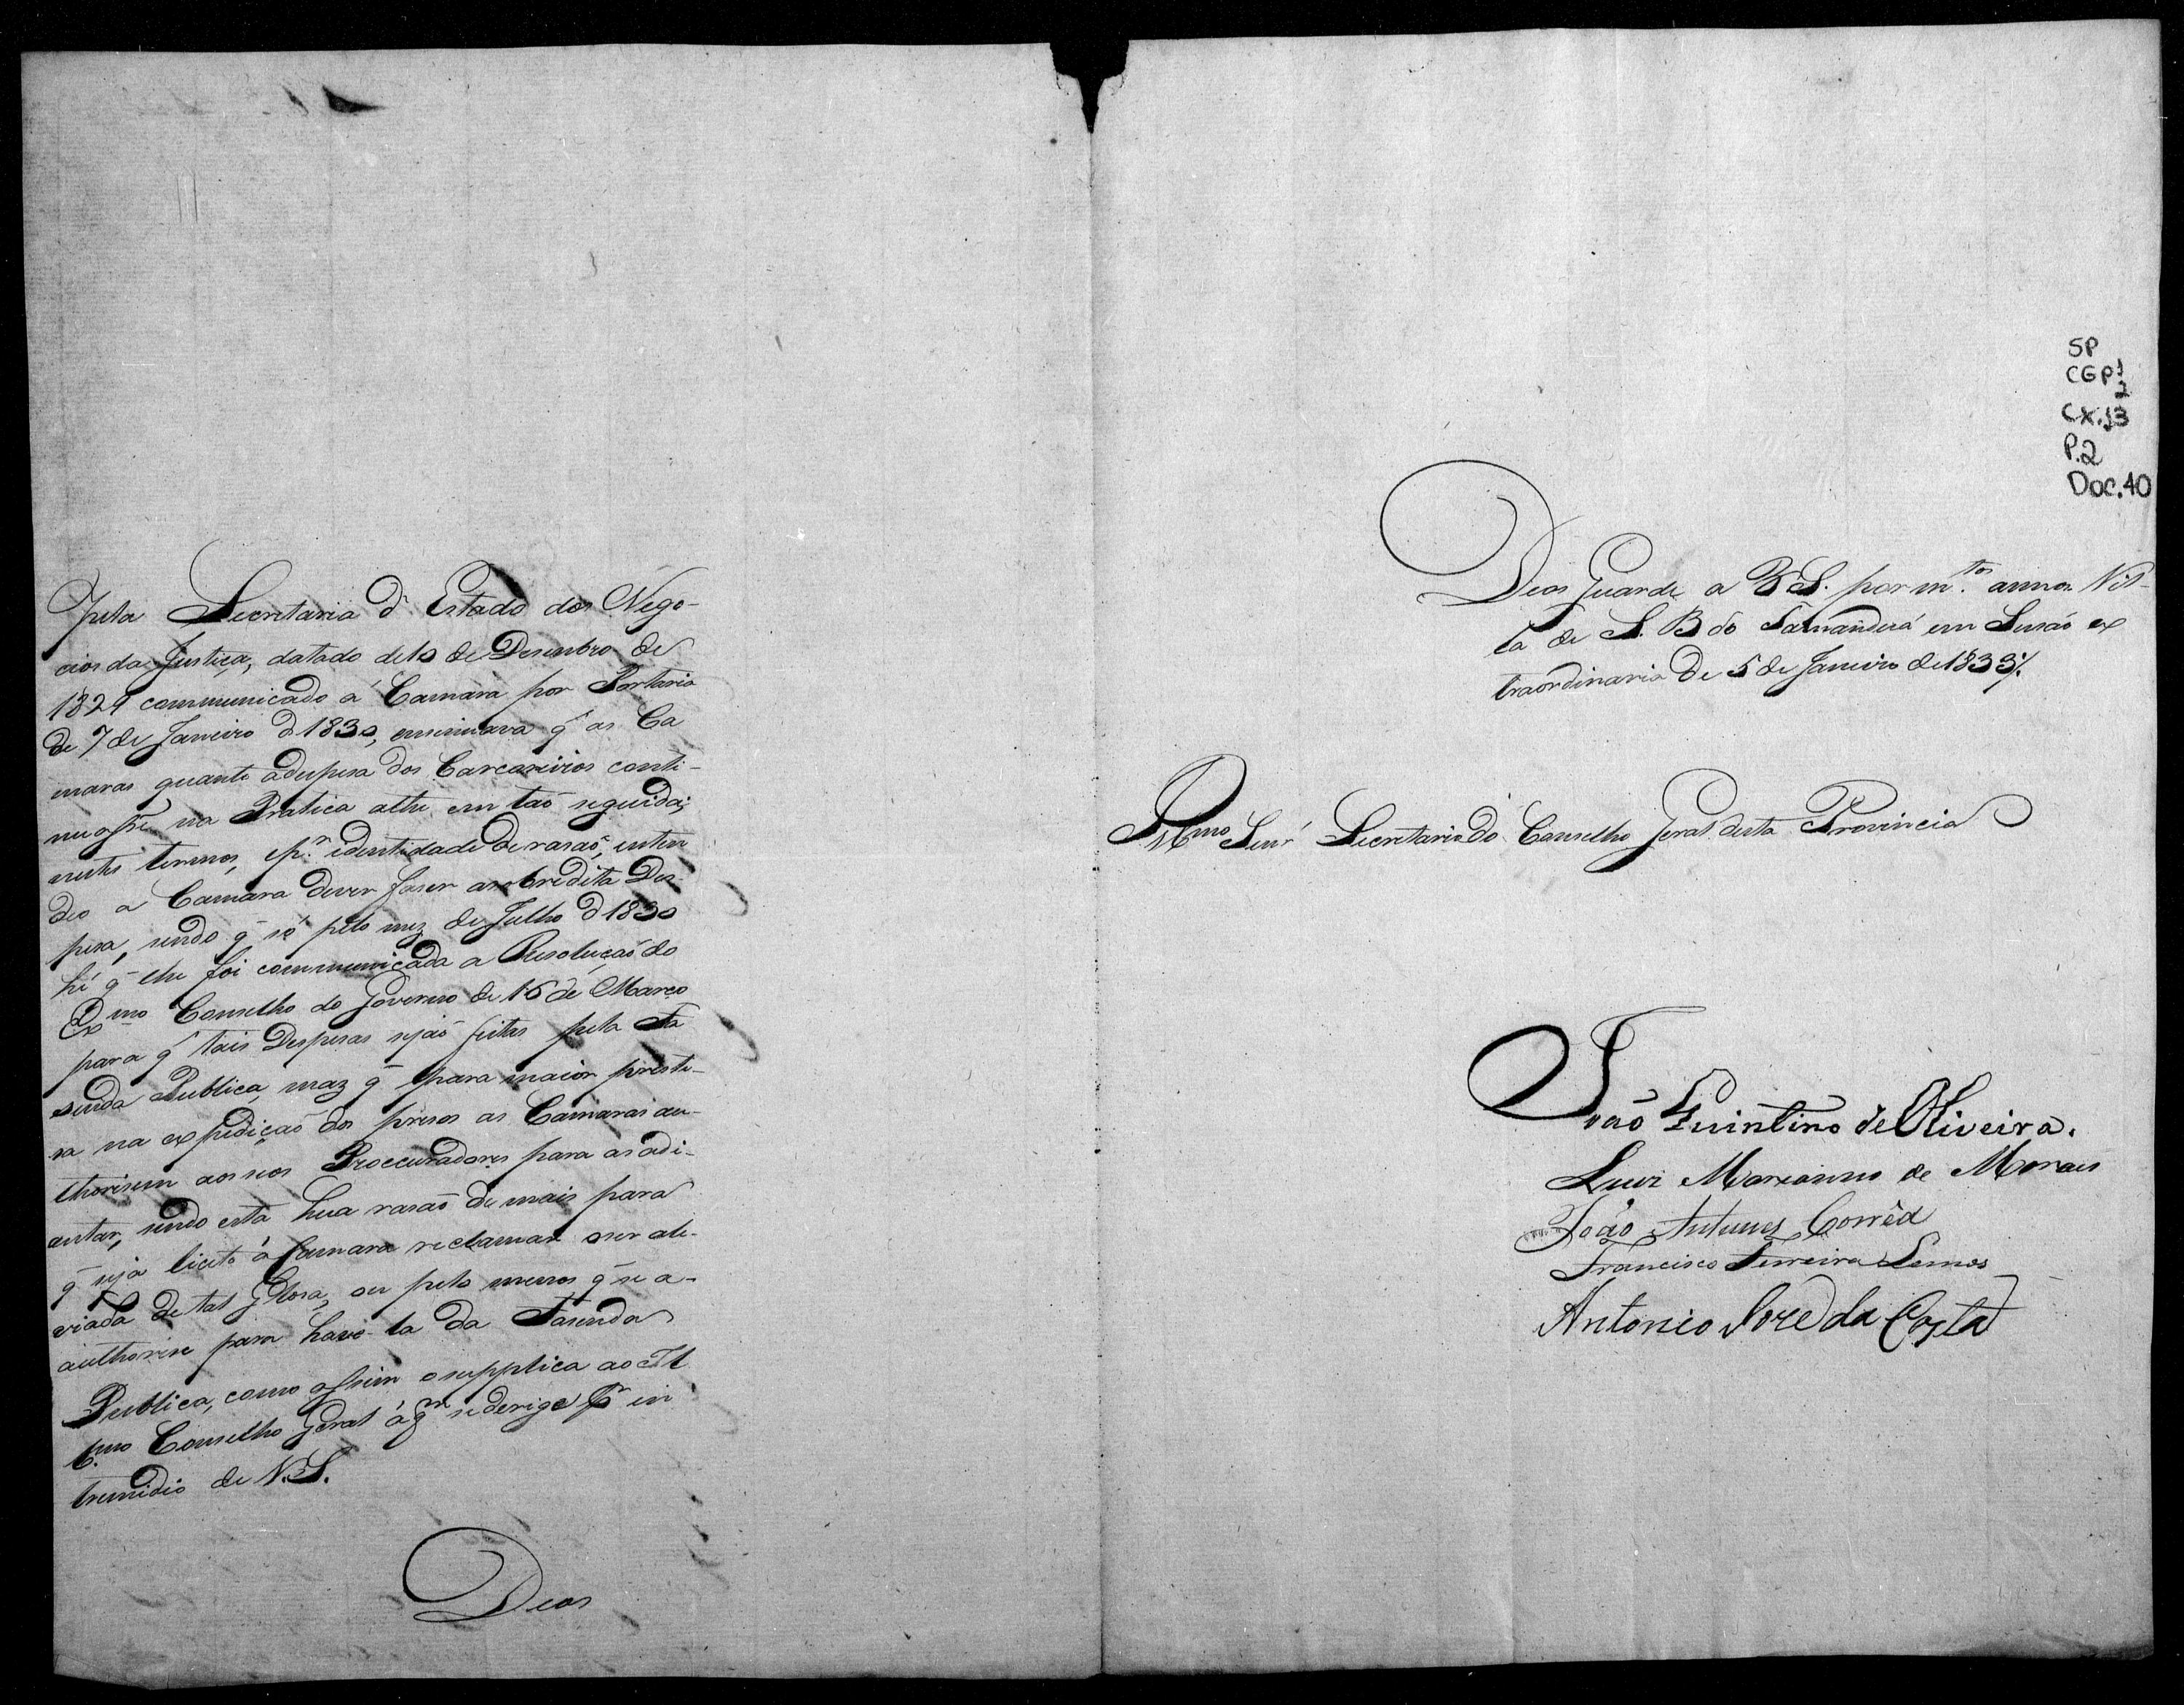 pela Secretaria d' Estado dos Nego-
cios da Justiça, datado de 10 de Desembro de
1829 communicado á Camara por Portaria
de 7 de Janeiro d 1830, ensinuava q̃ as Ca
maras quanto a despesa dos Carcareiros conti-
nuassẽ na Pratica athe em taõ seguida;
nestes termos, e p.r edentidade de rasaõ, enten
deo a Camara dever faser a sobredita Des-
pesa, sendo q̃ só pelo mez de Julho d 1830
hé q̃ lhe foi communicada a Resoluçaõ do
Ex.mo Conselho do Governo de 16 de Março
para q̃ tais Despesas sejaõ feitas pela Fa
senda Publica, maz q̃ para maior preste-
sa na expediçaõ dos presos as Camaras au-
thorisem aos seos Proccuradores para as adi-
antar, sendo esta hua rasaõ de mais para
q̃ seja licito á Camara reclamar o ser ali-
viada de tal Glosa, ou pelo menos q̃ se a-
authorise para have-la da Fasenda
Publica, como assim o supplica ao Il
l.mo Conselho Geral á q.m se derige p.r in
tremidio de V.S.
Deos
SP
CGP1
2
CX.13
P.2
Doc.40
Deos Guarde a V.S. por m.tos annos Vil-
la de S. B do Jamanducá em Sesaõ ex
traordinaria de 5 de Janeiro de 1833.
Ill.mo Senr. Secretario do Conselho Geral desta Provincia
João Quintino de Oliveira.
Luiz Marianno de Moraes
João Antunes Corrêa
Francisco Ferreira Lemos
Antonio Joze da Costa